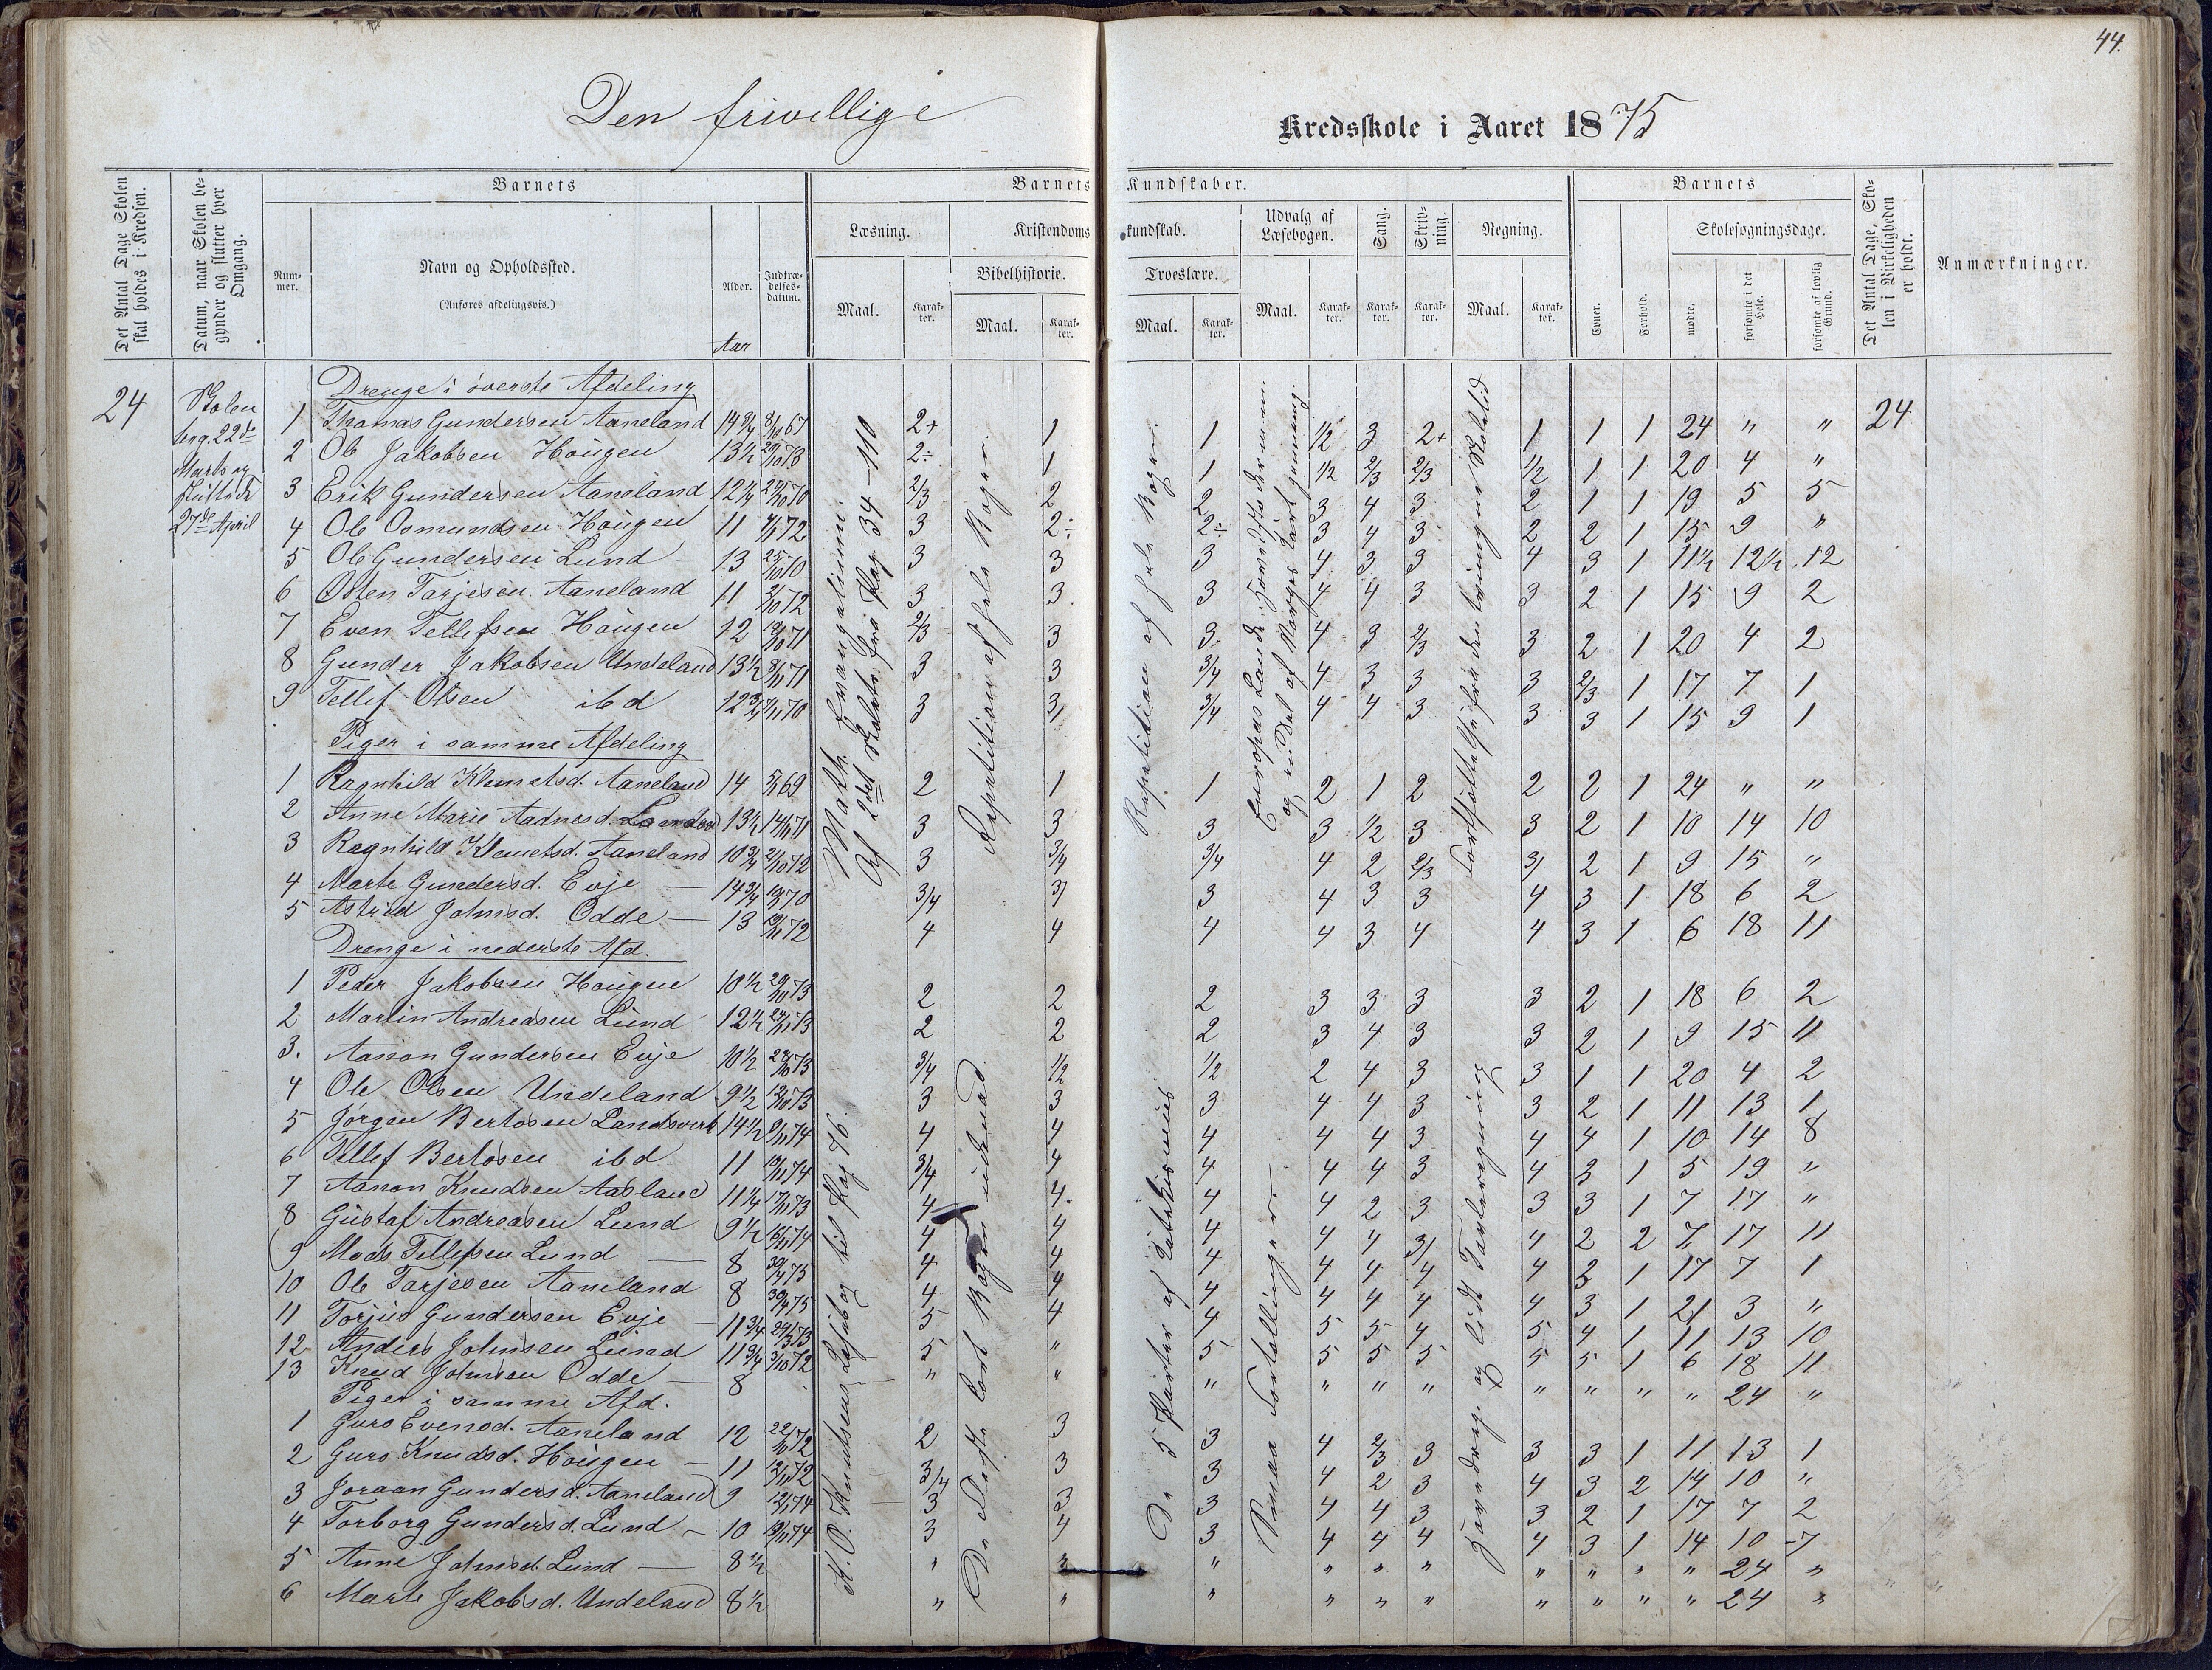 44.
Den frivellige Kredsskole i Aaret 1875
Det Antal Dage Skolen skal holdes i Kredsen.
Datum, naar Skolen begynder og slutter hver Omgang.
Barnets
Nummer.
Navn og Opholdssted.
(Anføres afdelingsvis.)
Alder.
Indtrædelsesdatum.
Aar
Barnets Kundskaber.
Læsning.
Kristendomskundskab.
Udvalg af Læsebogen.
Sang.
Skrivning.
Regning.
Bibelhistorie.
Troeslære.
Maal.
Karakter.
Maal.
Karakter.
Maal.
Karakter.
Maal.
Karakter.
Karakter.
Karakter.
Maal.
Karakter.
Barnets
Evner.
Forhold.
Skolesøgningsdage.
mødte.
forsømte i det Hele.
forsømte af lovlig Grund.
Det Antal Dage, Skolen i Virkeligheden er holdt.
Anmærkninger.
24
Skolen
beg. 22de
Marts og
sluttede
27de April
Math. Evangelium.
Af 2det Skoletr. fra Pag 34-110
Repetition af hele Bogen.
Repetition af hele Bogen.
Europas Lande
og en Del af Norges Kart gjennemg.
K. O. Knutsens Læsebog til Pag 76.
De 5 Parter af Katekismus
Smaa Fortællinger.
Hovedreg. og lidt Tavleregning
Drenge i øverste Afdeling
1 Thomas Gundersen Aaneland 14 3/4 8/10 67 2+ 1 1 1/2 3 2+ 1 1 1 24 " " 24
2 Ole Jakobsen Haugen 13 1/2 20/10 73 2÷ 1 1 1/2 2/3 2/3 1/2 1 1 20 4 "
3 Erik Gundersen Aaneland 12 1/4 24/10 70 2/3 2 2 3 4 3 2 1 1 19 5 5
4 Ole Osmundsen Haugen 11 4/11 72 3 2÷ 2÷ 3 4 3 2 2 1 15 9 "
5 Ole Gundersen Lund 13 25/10 70 3 3 3 4 3 3 4 3 1 11 1/2 12 1/2 12
6 Osten Tarjesen Aaneland 11 2/10 72 3 3 3 4 4 3 3 2 1 15 9 2
7 Even Tellefsen Haugen 12 19/10 71 2/3 3 3 4 3 2/3 3 2 1 20 4 2
8 Gunder Jakobsen Undeland 13 1/2 8/11 71 3 3 3/4 4 3 3 3 2/3 1 17 7 1
9 Tellef Olsen ibd 12 3/4 7/11 70 3 3 3/4 4 4 3 3 3 1 15 9 1
Piger i samme Afdeling
1 Ragnhild Klemetsd. Aaneland 14 5/1 69 2 1 1 2 1 2 2 2 1 24 " "
2 Anne Marie Aadnesd. 13 1/2 14/11 71 3 3 3 3 1/2 3 3 2 1 10 14 10
3 Ragnhild Klemetsd. Aaneland 10 3/4 2/10 72 3 3/4 3/4 4 2 2/3 3 2 1 9 15 "
4 Marte Gundersd. Evje — 14 3/4 19/3 70 3/4 3 3 4 3 3 4 3 1 18 6 2
5 Astrid Johnsd. Odde — 13 19/11 72 4 4 4 4 3 4 4 3 1 6 18 11
Drenge i nederste Afd.
1 Peder Jakobsen Haugen 10 1/2 20/10 73 2 2 2 3 3 3 3 2 1 18 6 2
2 Martin Andreasen Lund 12 1/2 24/11 73 2 2 2 3 4 3 3 2 1 9 15 11
3. Aanon Gundersen Evje 10 1/2 23/10 73 3/4 1/2 1/2 2 4 3 3 1 1 20 4 2
4 Ole Olsen Undeland 9 1/2 12/10 73 3 3 3 4 4 3 3 2 1 11 13 1
5 Jørgen Bertosen Landsverk 14 1/2 9/11 74 4 4 4 4 4 3 4 4 1 10 14 8
6 Tellef Bertosen ibd 11 19/11 74 3/4 4 4 4 4 3 4 3 1 5 19 "
7 Aanon Knudsen Aasland 11 1/4 17/11 73 4 4 4 4 2 3 3 3 1 7 17 "
8 Gustaf Andreasen Lund 9 1/2 16/11 74 4 4 4 4 4 3 4 2 2 7 17 11
9 Mads Tellefsen Lund — 8 30/4 75 4 4 4 4 4 4 4 3 1 17 7 1
10 Ole Tarjesen Aaneland 8 30/4 75 4 4 4 4 4 4 4 3 1 21 3 "
11 Torjus Gundersen Evje — 11 3/4 24/3 73 5 4 4 5 5 4 5 4 1 11 13 10
12 Anders Johnsen Lund 11 3/4 3/10 72 5 " 5 5 5 5 5 5 1 6 18 11
13 Knud Johnsen Odde — 8 " " " " " " " " " " 24 "
Piger i samme Afd.
1 Guro Evensd. Aaneland 12 22/10 72 2 3 3 4 2/3 3 3 3 1 11 13 1
2 Guro Knudsd. Haugen — 11 12/11 72 3/4 3 3 4 2 3 4 3 2 14 10 "
3 Joraan Gundersd. Aaneland 9 12/1 74 3 3 3 4 4 3 3 2 1 17 7 2
4 Torborg Gundersd. Lund — 10 19/11 74 3 4 3 4 4 4 4 3 1 14 10 -7
5 Anne Johnsd. Lund — 8 1/2 " " " " " " " " " " 24 "
6 Marte Jakobsd. Undeland 8 1/2 " " " " " " " " " " 24 "